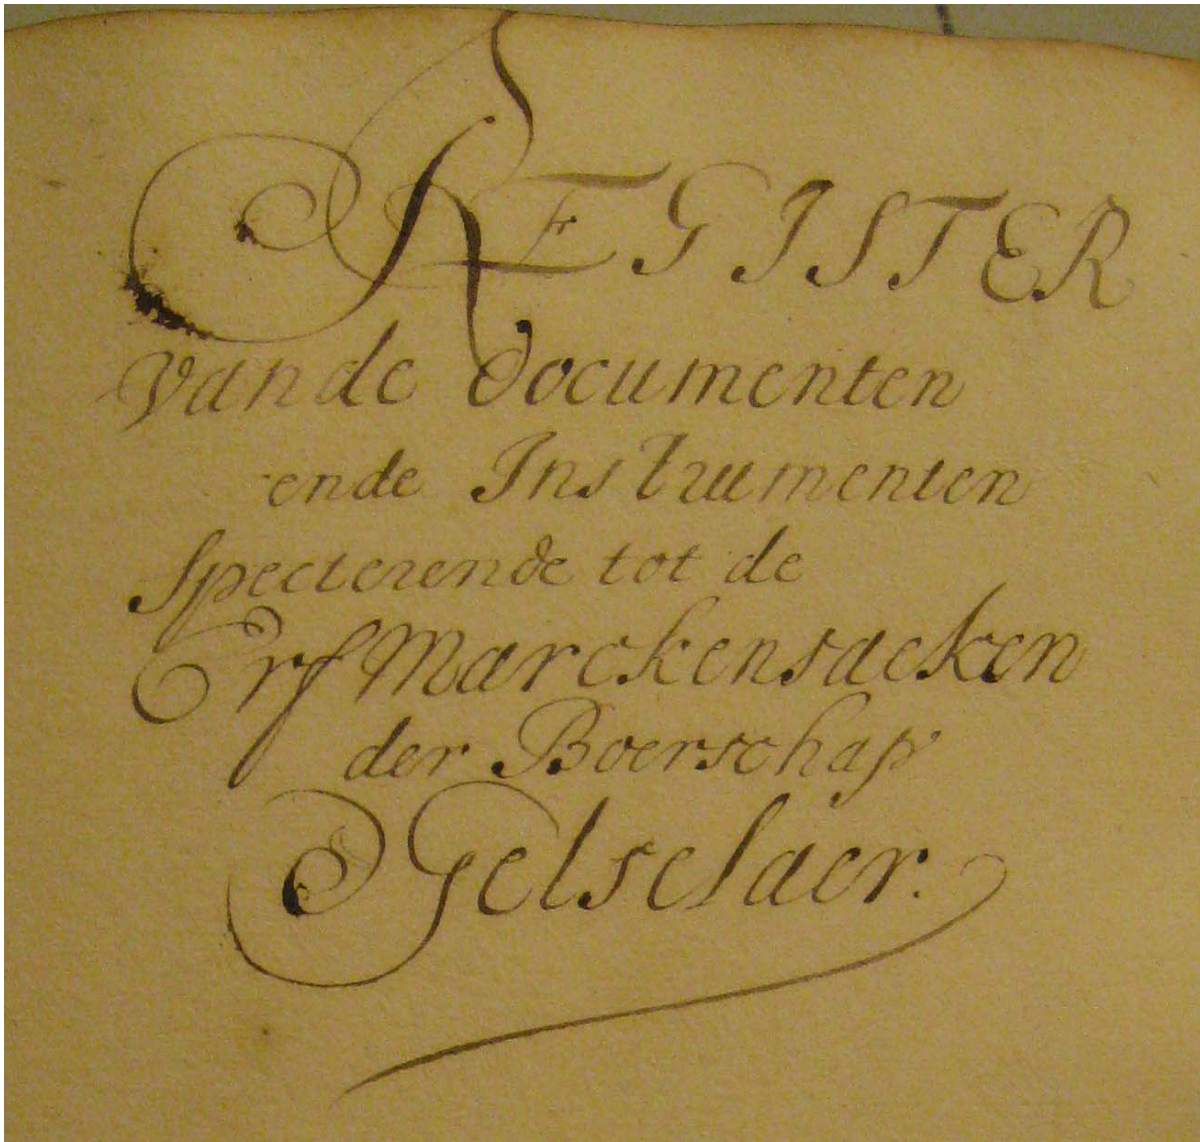 REGISTER
Vande documenten
ende Instrumenten
Specterende tot de
Erf Marckensaeken
der Boerschap
Gelselaer.